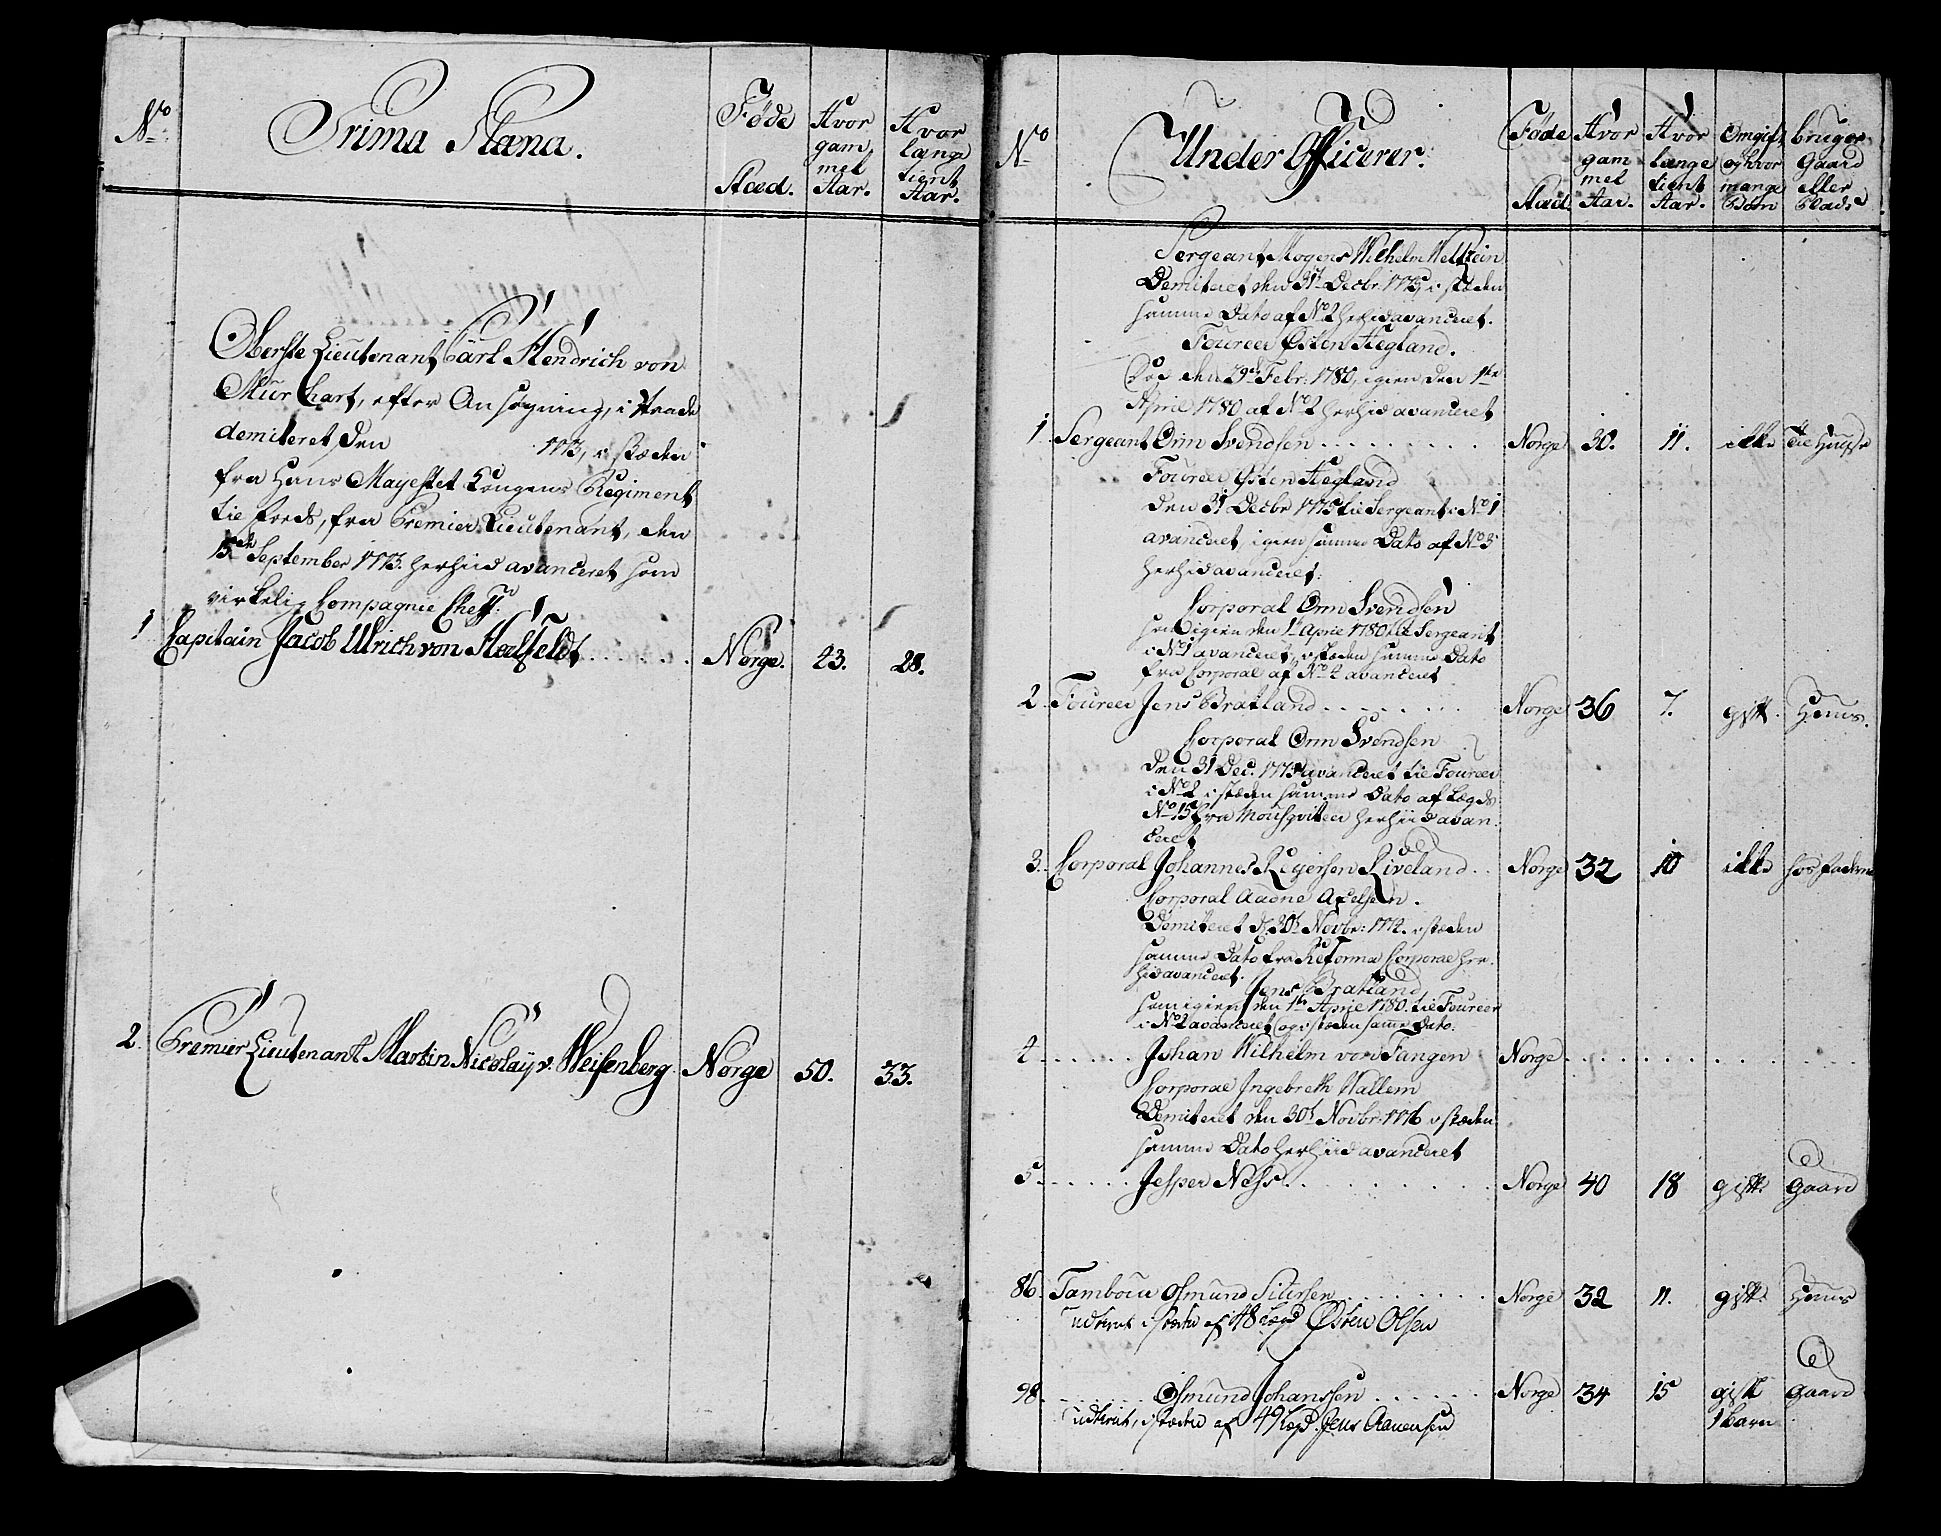 No
Prima Plana.
Føde
Stæd.
Hvor
gam
mel
Aar.
Hvor
længe
tient
Aar.
Oberste Lieutenant Carl Hendrich von
Murchart, efter Ansøgning, i Naade
demiteret den 1773, i stæden
fra Hans Mayestet Kongens Regiment
til foeds, fra Premier Lieutenant, den
15de September 1773. herhiid avanceret som
virkelig Compagnie Cheff:
1 Capitain Jacob Ulrich von Hælfeldt . . . . . . Norge. 43. 28.
2. Premier Lieutenant Martin Nicolaÿ v. Weisenberg Norge 50. 33.
No
Under Officerer.
Føde
Stæd.
Hvor
gam
mel
Aar.
Hvor
længe
tient
Aar.
Om gift
og hvor
mange
Børn
bruger
Gaard
eller
Plads
Sergeant Mogens Wilhelm Weltzein
Demiteret den 31t Decbr 1775, i stæden
samme Dato af No 2 herhid avanceret.
Foureer Østen Hegland.
Død den 29de Febr: 1780, igien den 1te
April 1780 af No 2 herhid avanceret
1. Sergeant Orm Svendsen . . . . . . . . Norge 30. 11. ikke til Huuse
Foureer Østen Hegland
den 31 Decbr 1775 til Sergeant i No 1
avanceret, igien samme Dato af No 3
herhid avanceret:
Corporal Orm Svendsen
som igien den 1te April 1780 til Sergeant
i No 1 avanceret, i stæden samme Dato
fra Corporal af No 4 avanceret
2. Foureer Jens Bratland . . . . . . . Norge 36 7. gift. Huus.
Corporal Orm Svendsen
den 31 Dec. 1775 avanceret til Foureer
i No 2 i stæden samme Dato af Lægds
No 15 fra Mousqviteer herhiid avan-
ceret
3. Corporal Johannes Reiersen Riveland . . Norge 32 10 ikke hos faderen
Corporal Aadne Axelsen.
Demiteret d. 30t Novbr: 1772. i stæden
samme Dato fra Reforma Corporal her-
hid avanceret.
Jens Bratland
som igien den 1te April 1780 til Foureer
i No 2 avanceret og i stæden samme Dato.
4 . . . . . . Johan Wilhelm von Tangen Norge . . . . . . . . . .
Corporal Ingebreth Wallem
Demiteret den 30t Novbr: 1776 i stæden
samme Dato herhiid avanceret
5. . . . . . . Jesper Ness. . . . . . . . . Norge 40 18 gift. Gaard
86. Tambour Osmund Sivertsen . . . . . . . . Norge 32 11. gift. Huus
udtient i stæden af 48 Lægd Østen Olsen
98. . . . . . . Osmund Johanssen . . . . . . Norge 34 15 gift Gaard
udtient, i stæden af 49 Lægd. Jens Aanensen
1 barn